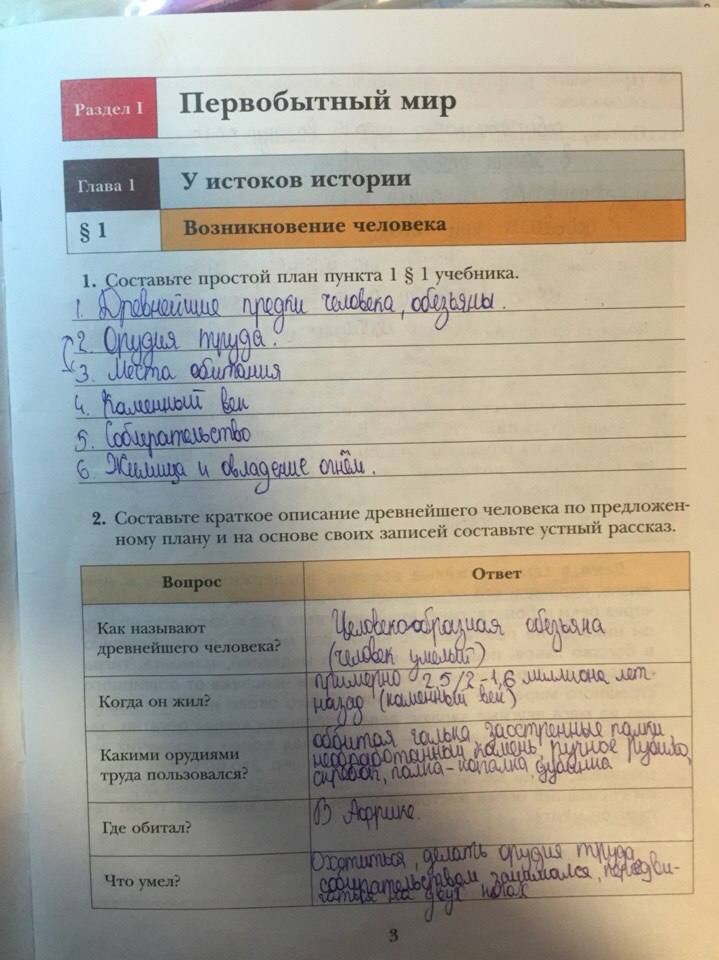 Раздел I
Первобытный мир
Глава 1
У истоков истории
§ 1
Возникновение человека
1. Составьте простой план пункта 1 § 1 учебника.
1. Древнейшие предки человека, обезьяны.
2. Орудия труда.
3. Места обитания
4. Каменный век
5. Собирательство
6. Жилища и овладение огнём.
2. Составьте краткое описание древнейшего человека по предложен-
ному плану и на основе своих записей составьте устный рассказ.
Вопрос
Ответ
Как называют
древнейшего человека?
Человекообразная обезьяна
(человек умелый)
Когда он жил?
примерно 2,5/2-1,6 миллиона лет
назад (каменный век)
Какими орудиями
труда пользовался?
оббитая галька, заостренные палки
камень, ручное рубило,
палка-копалка, дубинка
Где обитал?
В Африке.
Что умел?
Охотиться, делать орудия труда,
собирательством занимался, передви-
гаться на двух ногах
3